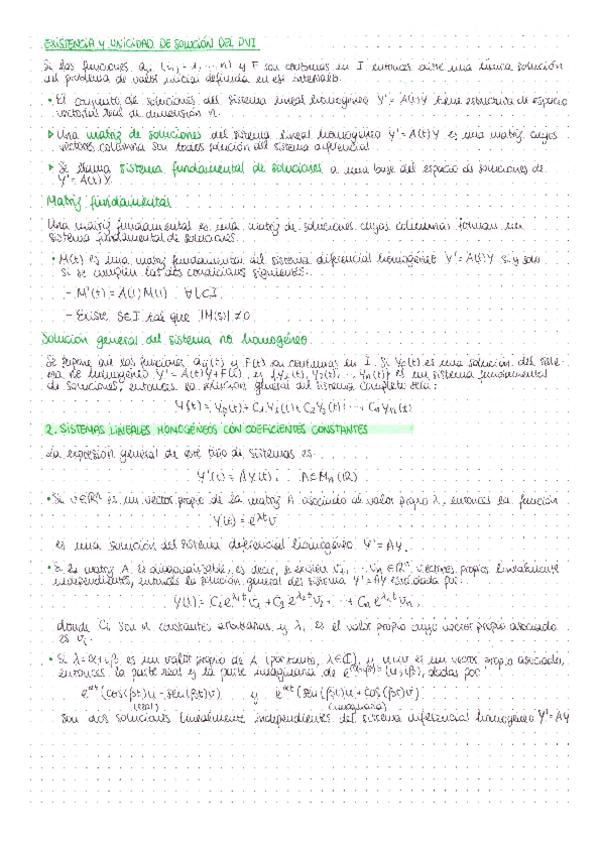 EXISTENCIA Y UNICIDAD DE SOLUCIÓN DEL PVI
Si las funciones aij (i, j = 1, ... n) y F son continuas en I entonces existe una única solución
del problema de valor inicial definida en ese intervalo.
• El conjunto de soluciones del sistema lineal homogéneo Y' = A(t)Y tiene estructura de espacio
vectorial real de dimensión n.
▷ Una matriz de soluciones del sistema lineal homogéneo Y' = A(t)Y es una matriz cuyos
vectores columna son todos solución del sistema diferencial.
▷ Se llama sistema fundamental de soluciones a una base del espacio de soluciones de
Y' = A(t)Y.
Matriz fundamental
Una matriz fundamental es una matriz de soluciones cuyas columnas forman un
sistema fundamental de soluciones.
• M(t) es una matriz fundamental del sistema diferencial homogéneo Y' = A(t)Y si y solo
si se cumplen las dos condiciones siguientes:
- M'(t) = A(t)M(t) ∀t∈I
- Existe s∈I tal que |M(s)| ≠ 0
Solución general del sistema no homogéneo
Se supone que las funciones aij(t) y F(t) son continuas en I. Si Yp(t) es una solución del siste-
ma no homogéneo Y' = A(t)Y + F(t), y {Y1(t), Y2(t), ... Yn(t)} es un sistema fundamental
de soluciones, entonces la solución general del sistema completo será:
Y(t) = Yp(t) + C1Y1(t) + C2Y2(t) + ... + CnYn(t)
2. SISTEMAS LINEALES HOMOGÉNEOS CON COEFICIENTES CONSTANTES
La expresión general de este tipo de sistemas es
Y'(t) = AY(t), A∈Mn(ℝ)
• Si v∈ℝⁿ es un vector propio de la matriz A asociado al valor propio λ, entonces la función
Y(t) = e^λt v
es una solución del sistema diferencial homogéneo Y' = AY.
• Si la matriz A es diagonalizable, es decir, si existen v1, ... vn ∈ ℝⁿ vectores propios linealmente
independientes, entonces la solución general del sistema Y' = AY está dada por:
Y(t) = C1e^λ1t v1 + C2e^λ2t v2 + ... + Cne^λnt vn,
donde Ci son n constantes arbitrarias y λi es el valor propio cuyo vector propio asociado
es vi.
• Si λ = α+iβ es un valor propio de A (por tanto, λ∈ℂ), y u+iv es un vector propio asociado,
entonces la parte real y la parte imaginaria de e^(α+iβ)t (u+iv), dadas por
e^αt (cos(βt)u - sen(βt)v) y e^αt (sen(βt)u + cos(βt)v)
(real) (imaginaria)
son dos soluciones linealmente independientes del sistema diferencial homogéneo Y' = AY